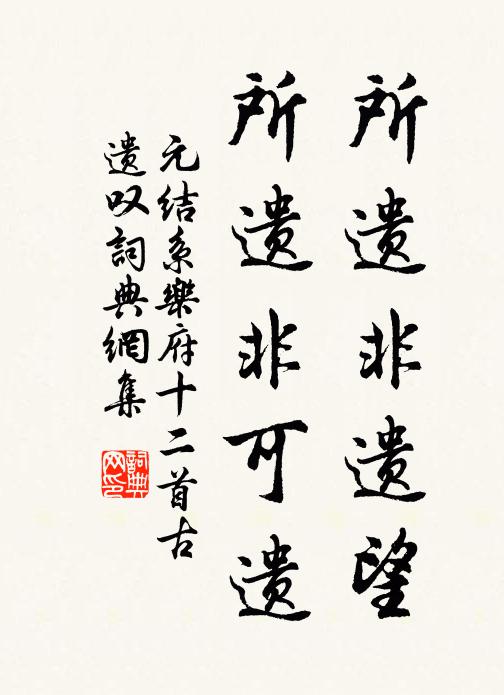 所遗非遗望
所遗非可遗
元结系樂府十二首古
遗叹詞典網集
詞典网印